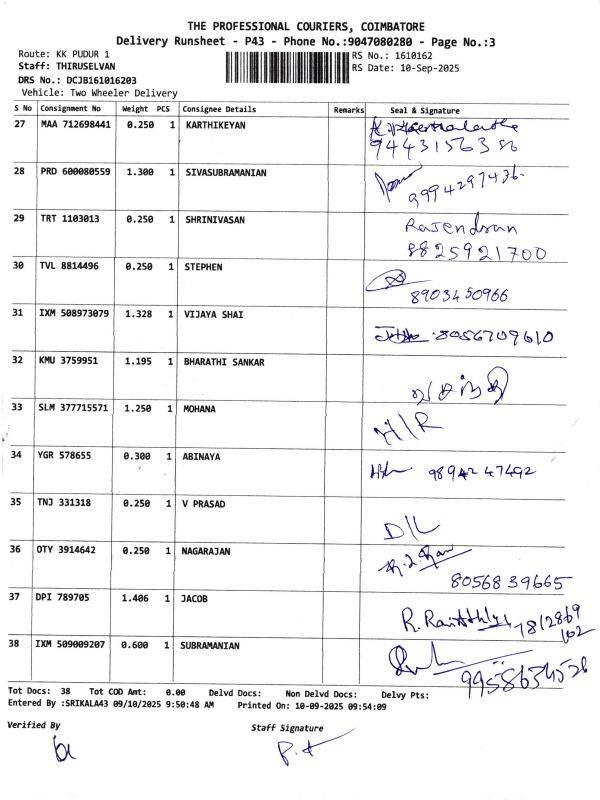 THE PROFESSIONAL COURIERS, COIMBATORE
Delivery Runsheet - P43 - Phone No.:9047080280 - Page No.:3
Route: KK PUDUR 1
RS No.: 1610162
Staff: THIRUSELVAN
RS Date: 10-Sep-2025
DRS No.: DCJB161016203
Vehicle: Two Wheeler Delivery
S No Consignment No Weight PCS Consignee Details Remarks Seal & Signature
27 MAA 712698441 0.250 1 KARTHIKEYAN
28 PRD 600080559 1.300 1 SIVASUBRAMANIAN
9994297436
29 TRT 1103013 0.250 1 SHRINIVASAN Rajendran
8825921700
30 TVL 8814496 0.250 1 STEPHEN
8903450966
31 IXM 508973079 1.328 1 VIJAYA SHAI
8056709610
32 KMU 3759951 1.195 1 BHARATHI SANKAR
33 SLM 377715571 1.250 1 MOHANA
H/R
34 YGR 578655 0.300 1 ABINAYA
9894247492
35 TNJ 331318 0.250 1 V PRASAD
D/L
36 OTY 3914642 0.250 1 NAGARAJAN
8056839665
37 DPI 789705 1.406 1 JACOB
38 IXM 509009207 0.600 1 SUBRAMANIAN
Tot Docs: 38 Tot COD Amt: 0.00 Delvd Docs: Non Delvd Docs: Delvy Pts:
Entered By :SRIKALA43 09/10/2025 9:50:48 AM Printed On: 10-09-2025 09:54:09
Verified By
Staff Signature